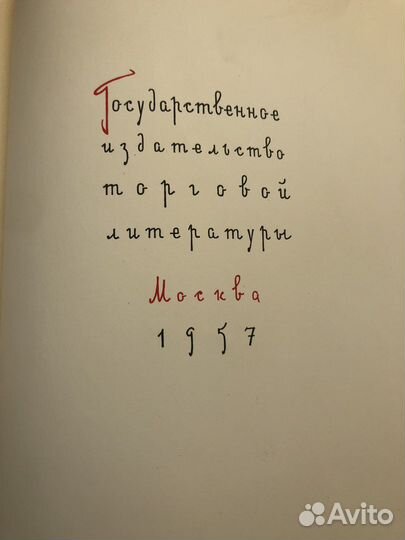 Государственное
издательство
торговой
литературы
Москва
1957
Avito